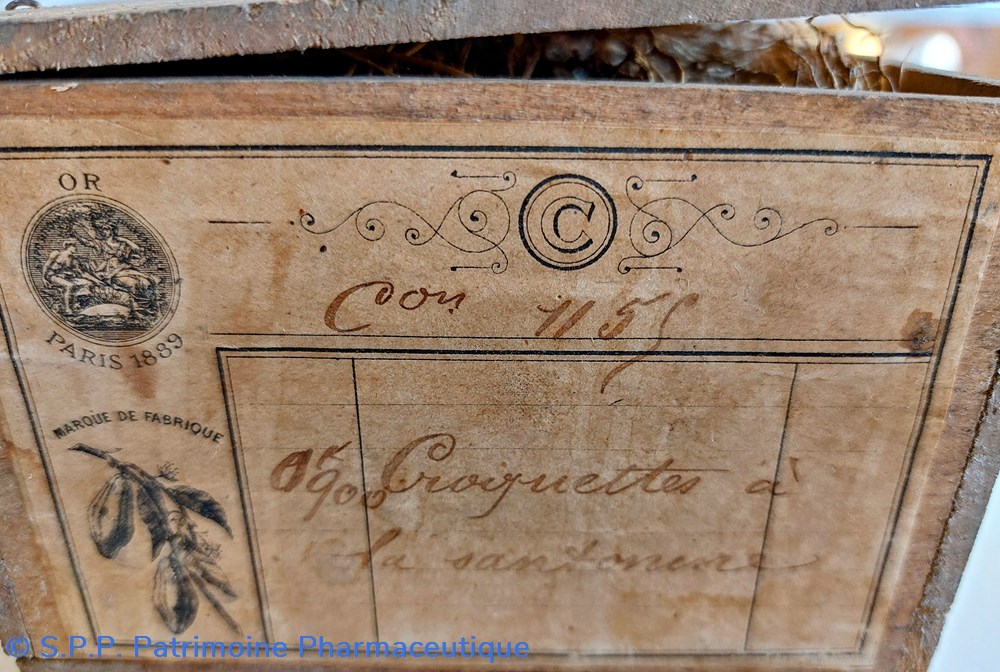 OR
PARIS 1889
MARQUE DE FABRIQUE
C
Con 1155
0k900 Croquettes à
la santonine
© S.P.P. Patrimoine Pharmaceutique